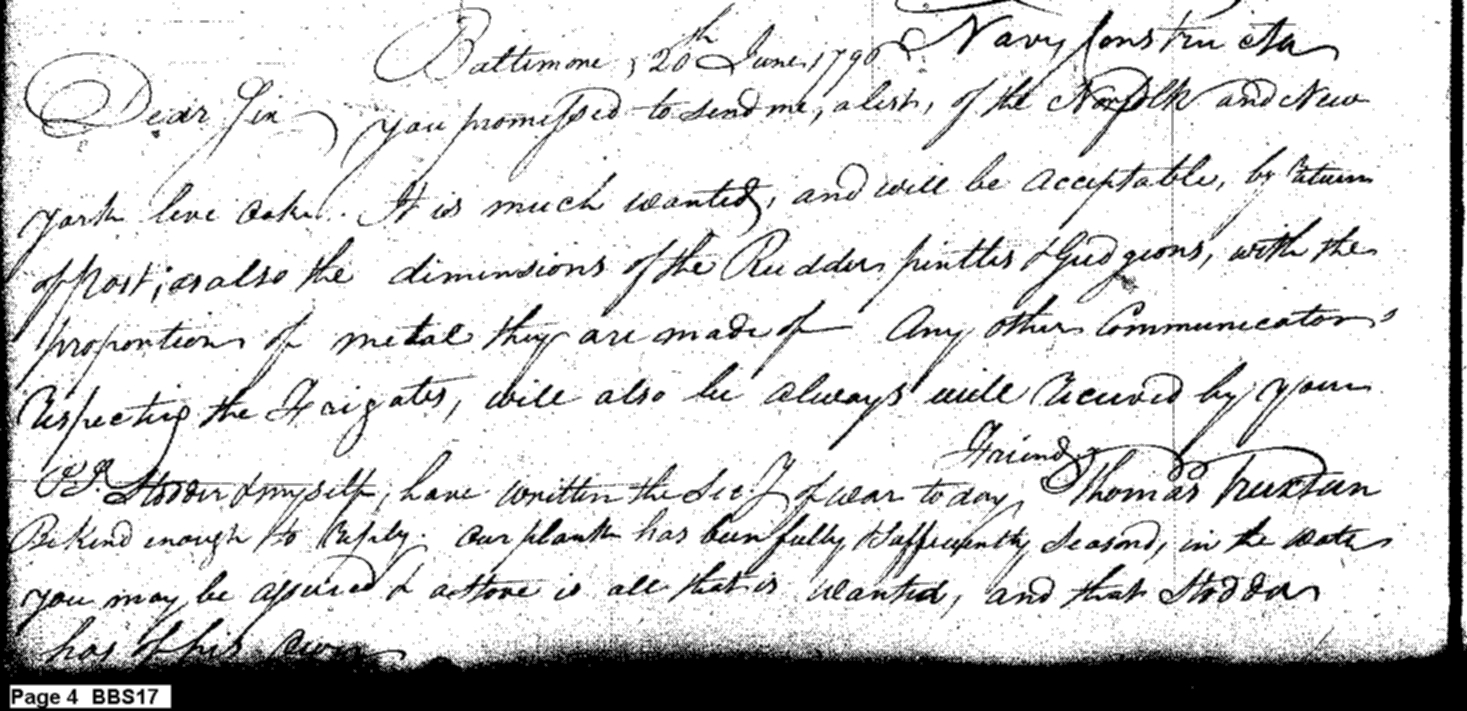 Navy Constructor
Baltimore, 20th June 1796
Dear Sir
you promised to send me, a list, of the Norfolk and New
york live oak. It is much wanted, and will be acceptable, by return
of Post; as also the dimensions of the Rudder pintles & Gudgeons, with the
proportion of metal they are made of Any other Communications
respecting the Frigates, will also be always well received by your
Friend
Thomas Truxtun
P.S. Stodder & myself, have written the Secy of war to day
Be kind enough to reply. our plank has been fully & sufficiently seasond, in the water
you may be assured & a stove is all that is wanted, and that Stodder
has of his own
Page 4 BBS17